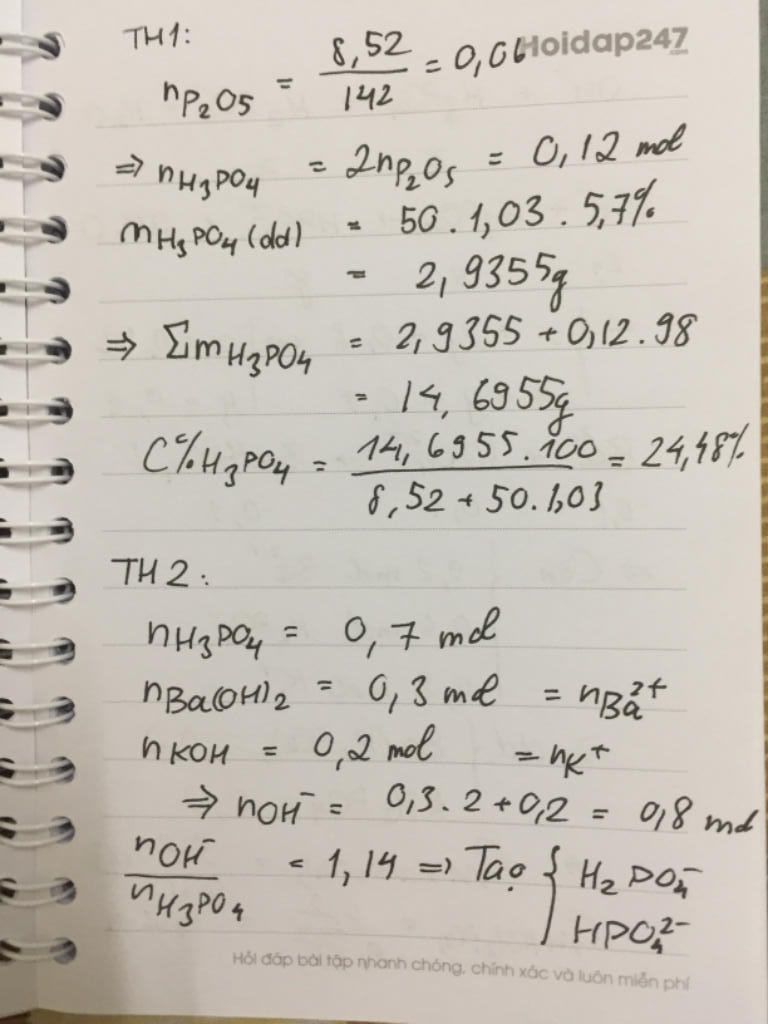 TH1:
Hoidap247
nP2O5 = 8,52/142 = 0,06
⇒ nH3PO4 = 2nP2O5 = 0,12 mol
mH3PO4(dd) = 50.1,03.5,7%
= 2,9355g
⇒ ΣmH3PO4 = 2,9355 + 0,12.98
= 14,6955g
C%H3PO4 = 14,6955.100/8,52 + 50.1,03 = 24,48%
TH2:
nH3PO4 = 0,7 mol
nBa(OH)2 = 0,3 mol = nBa2+
nKOH = 0,2 mol = nK+
⇒ nOH- = 0,3.2 + 0,2 = 0,8 mol
nOH-/nH3PO4 = 1,14 ⇒ Tạo { H2PO4-
HPO42-
Hỏi đáp bài tập nhanh chóng, chính xác và luôn miễn phí